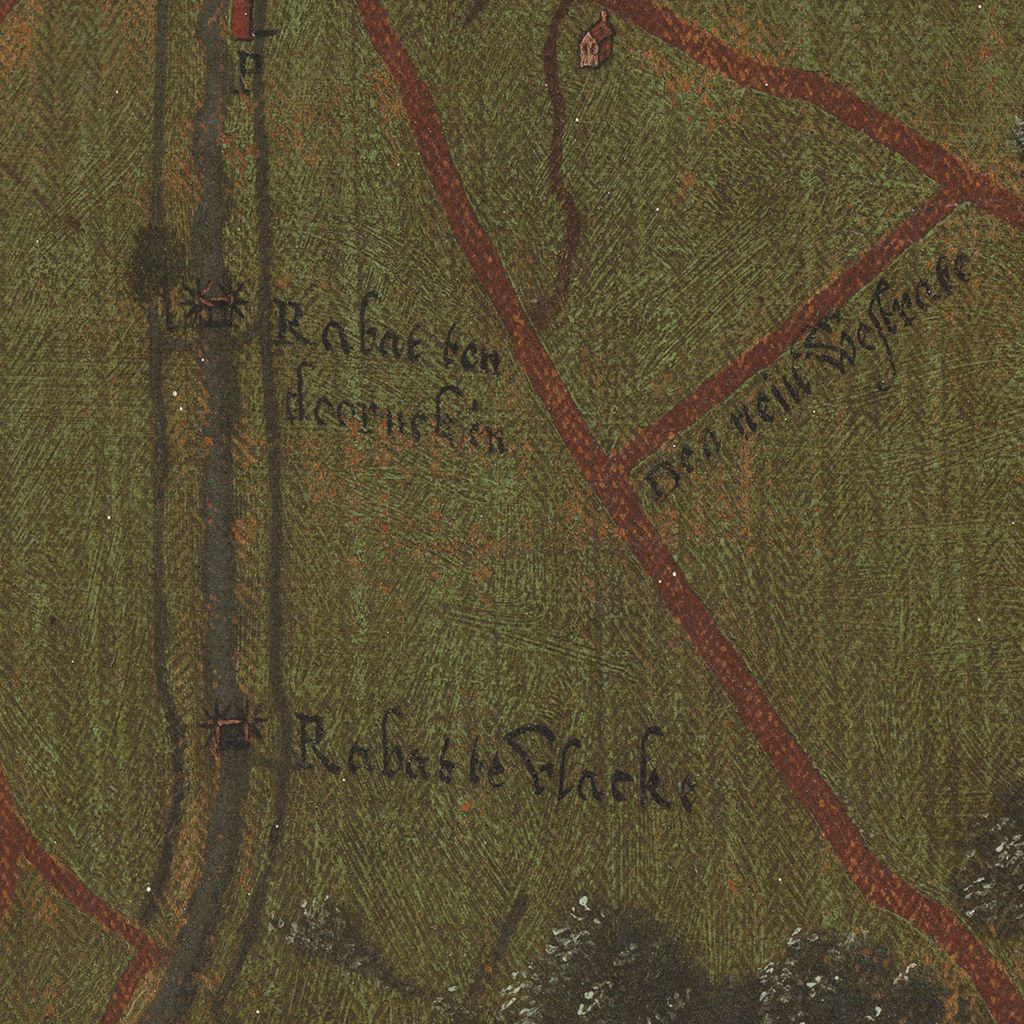 P
Rabat ten
doornekin
Den neiu Westrate
Rabat te Vlacke